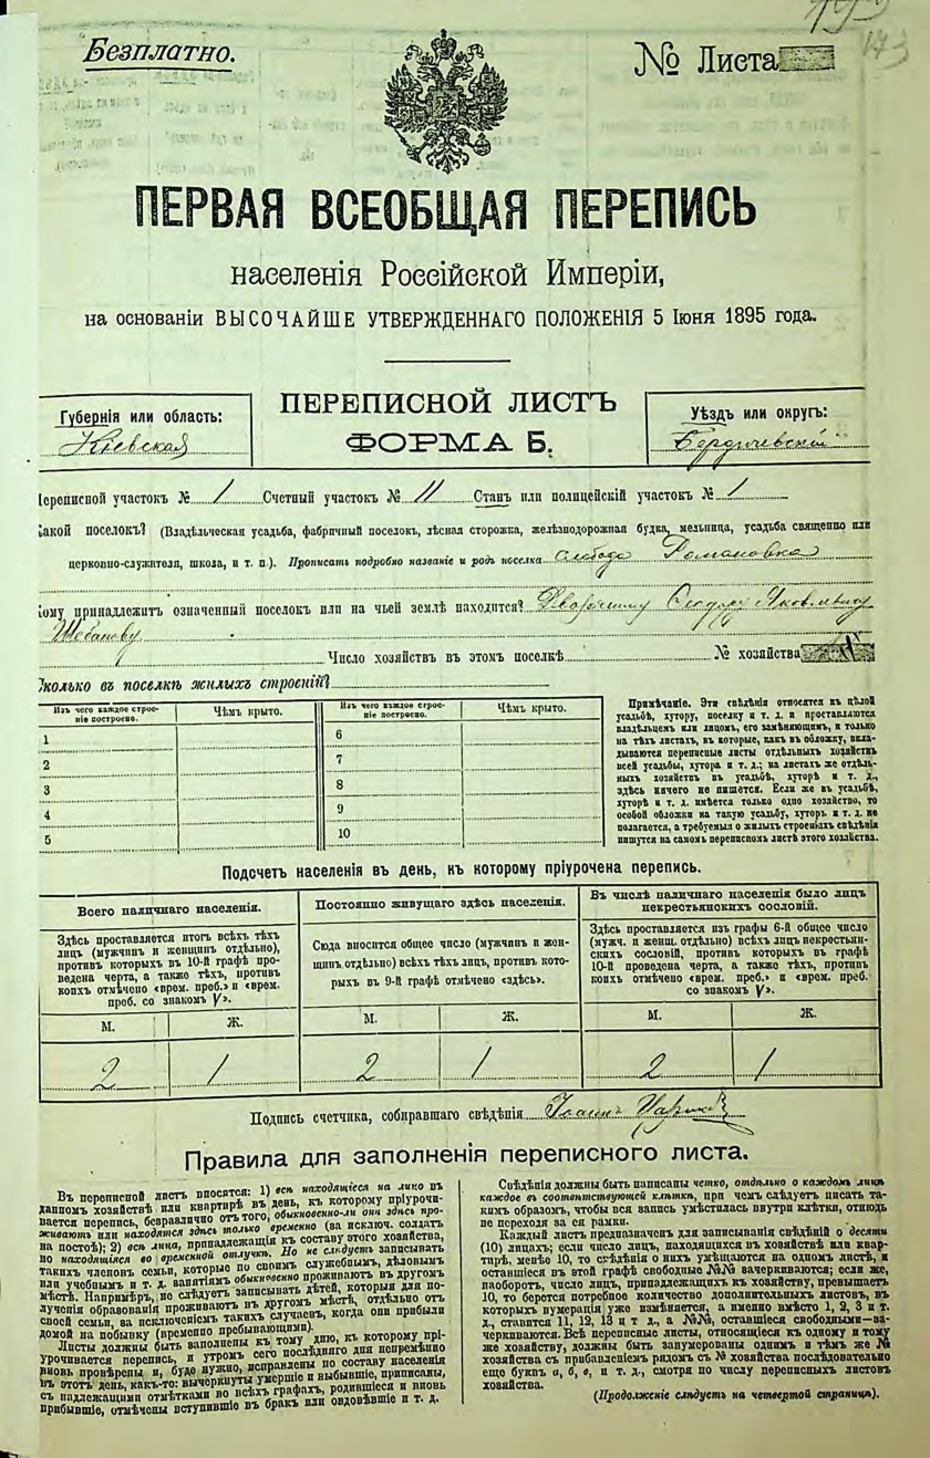 Безплатно.
№ Листа
173
ПЕРВАЯ ВСЕОБЩАЯ ПЕРЕПИСЬ
населенія Россійской Имперіи,
на основаніи ВЫСОЧАЙШЕ УТВЕРЖДЕННАГО ПОЛОЖЕНІЯ 5 Іюня 1895 года.
Губернія или область:
Кіевская
ПЕРЕПИСНОЙ ЛИСТЪ
ФОРМА Б.
Уѣздъ или округъ:
Бердичевскій
Переписной участокъ № 1 Счетный участокъ № 11 Станъ или полицейскій участокъ № 1
Какой поселокъ? (Владѣльческая усадьба, фабричный поселокъ, лѣсная сторожка, желѣзнодорожная будка, мельница, усадьба священно или
церковно-служителя, школа, и т. п.). Прописать подробно названіе и родъ поселка слобода Романовка
Кому принадлежитъ означенный поселокъ или на чьей землѣ находится? Дворянину Ѳеодору Яковлевичу
Число хозяйствъ въ этомъ поселкѣ № хозяйства
Сколько въ поселкѣ жилыхъ строеній?
Изъ чего каждое строе-
ніе построено.
Чѣмъ крыто.
Изъ чего каждое строе-
ніе построено.
Чѣмъ крыто.
1 6
2 7
3 8
4 9
5 10
Примѣчаніе. Эти свѣдѣнія относятся къ цѣлой
усадьбѣ, хутору, поселку и т. д. и проставляются
владѣльцемъ или лицомъ, его замѣняющимъ, и только
на тѣхъ листахъ, въ которые, какъ въ обложку, вкла-
дываются переписные листы отдѣльныхъ хозяйствъ
всей усадьбы, хутора и т. д.; на листахъ же отдѣль-
ныхъ хозяйствъ въ усадьбѣ, хуторѣ и т. д.,
здѣсь ничего не пишется. Если же въ усадьбѣ,
хуторѣ и т. д. имѣется только одно хозяйство, то
особой обложки на такую усадьбу, хуторъ и т. д. не
полагается, а требуемыя о жилыхъ строеніяхъ свѣдѣнія
пишутся на самомъ переписномъ листѣ этого хозяйства.
Подсчетъ населенія въ день, къ которому пріурочена перепись.
Всего наличнаго населенія.
Здѣсь проставляется итогъ всѣхъ тѣхъ
лицъ (мужчинъ и женщинъ отдѣльно),
противъ которыхъ въ 10-й графѣ про-
ведена черта, а также тѣхъ, противъ
коихъ отмѣчено «врем. преб.» и «врем.
преб. со знакомъ V».
М. Ж.
2 1
Постоянно живущаго здѣсь населенія.
Сюда вносится общее число (мужчинъ и жен-
щинъ отдѣльно) всѣхъ тѣхъ лицъ, противъ кото-
рыхъ въ 9-й графѣ отмѣчено «здѣсь».
М. Ж.
2 1
Въ числѣ наличнаго населенія было лицъ
некрестьянскихъ сословій.
Здѣсь проставляется изъ графы 6-й общее число
(мужч. и женщ. отдѣльно) всѣхъ лицъ некрестьян-
скихъ сословій, противъ которыхъ въ графѣ
10-й проведена черта, а также тѣхъ, противъ
коихъ отмѣчено «врем. преб.» и «врем. преб.
со знакомъ V».
М. Ж.
2 1
Подпись счетчика, собиравшаго свѣдѣнія
Правила для заполненія переписного листа.
Въ переписной листъ вносятся: 1) всѣ находящіеся на лицо въ
данномъ хозяйствѣ или квартирѣ въ день, къ которому пріурочи-
вается перепись, безразлично отъ того, обыкновенно-ли они здѣсь про-
живаютъ или находятся здѣсь только временно (за исключ. солдатъ
на постоѣ); 2) всѣ лица, принадлежащія къ составу этого хозяйства,
но находящіяся во временной отлучкѣ. Но не слѣдуетъ записывать
такихъ членовъ семьи, которые по своимъ служебнымъ, дѣловымъ
или учебнымъ и т. д. занятіямъ обыкновенно проживаютъ въ другомъ
мѣстѣ. Напримѣръ, не слѣдуетъ записывать дѣтей, которыя для по-
лученія образованія проживаютъ въ другомъ мѣстѣ, отдѣльно отъ
своей семьи, за исключеніемъ такихъ случаевъ, когда они прибыли
домой на побывку (временно пребывающими).
Листы должны быть заполнены къ тому дню, къ которому прі-
урочивается перепись, и утромъ сего послѣдняго дня непремѣнно
вновь провѣрены и, буде нужно, исправлены по составу населенія
въ этотъ день, какъ-то: вычеркнуты умершіе и выбывшіе, приписаны,
съ надлежащими отмѣтками во всѣхъ графахъ, родившіеся и вновь
прибывшіе, отмѣчены вступившіе въ бракъ или овдовѣвшіе и т. д.
Свѣдѣнія должны быть написаны четко, отдѣльно о каждомъ лицѣ
каждое въ соотвѣтствующей клѣткѣ, при чемъ слѣдуетъ писать та-
кимъ образомъ, чтобы вся запись умѣстилась внутри клѣтки, отнюдь
не переходя за ея рамки.
Каждый листъ предназначенъ для записыванія свѣдѣній о десяти
(10) лицахъ; если число лицъ, находящихся въ хозяйствѣ или квар-
тирѣ, менѣе 10, то свѣдѣнія о нихъ умѣщаются на одномъ листѣ, и
оставшіеся въ этой графѣ свободные №№ вачеркиваются; если же,
наоборотъ, число лицъ, принадлежащихъ къ хозяйству, превышаетъ
10, то берется потребное количество дополнительныхъ листовъ, въ
которыхъ нумерація уже измѣняется, а именно вмѣсто 1, 2, 3 и т.
д., ставится 11, 12, 13 и т д., а №№, оставшіеся свободными—за-
черкиваются. Всѣ переписные листы, относящіеся къ одному и тому
же хозяйству, должны быть занумерованы однимъ и тѣмъ же №
хозяйства съ прибавленіемъ рядомъ съ № хозяйства послѣдовательно
еще буквъ а, б, в, и т. д., смотря по числу переписныхъ листовъ
хозяйства.
(Продолженіе слѣдуетъ на четвертой страницѣ).